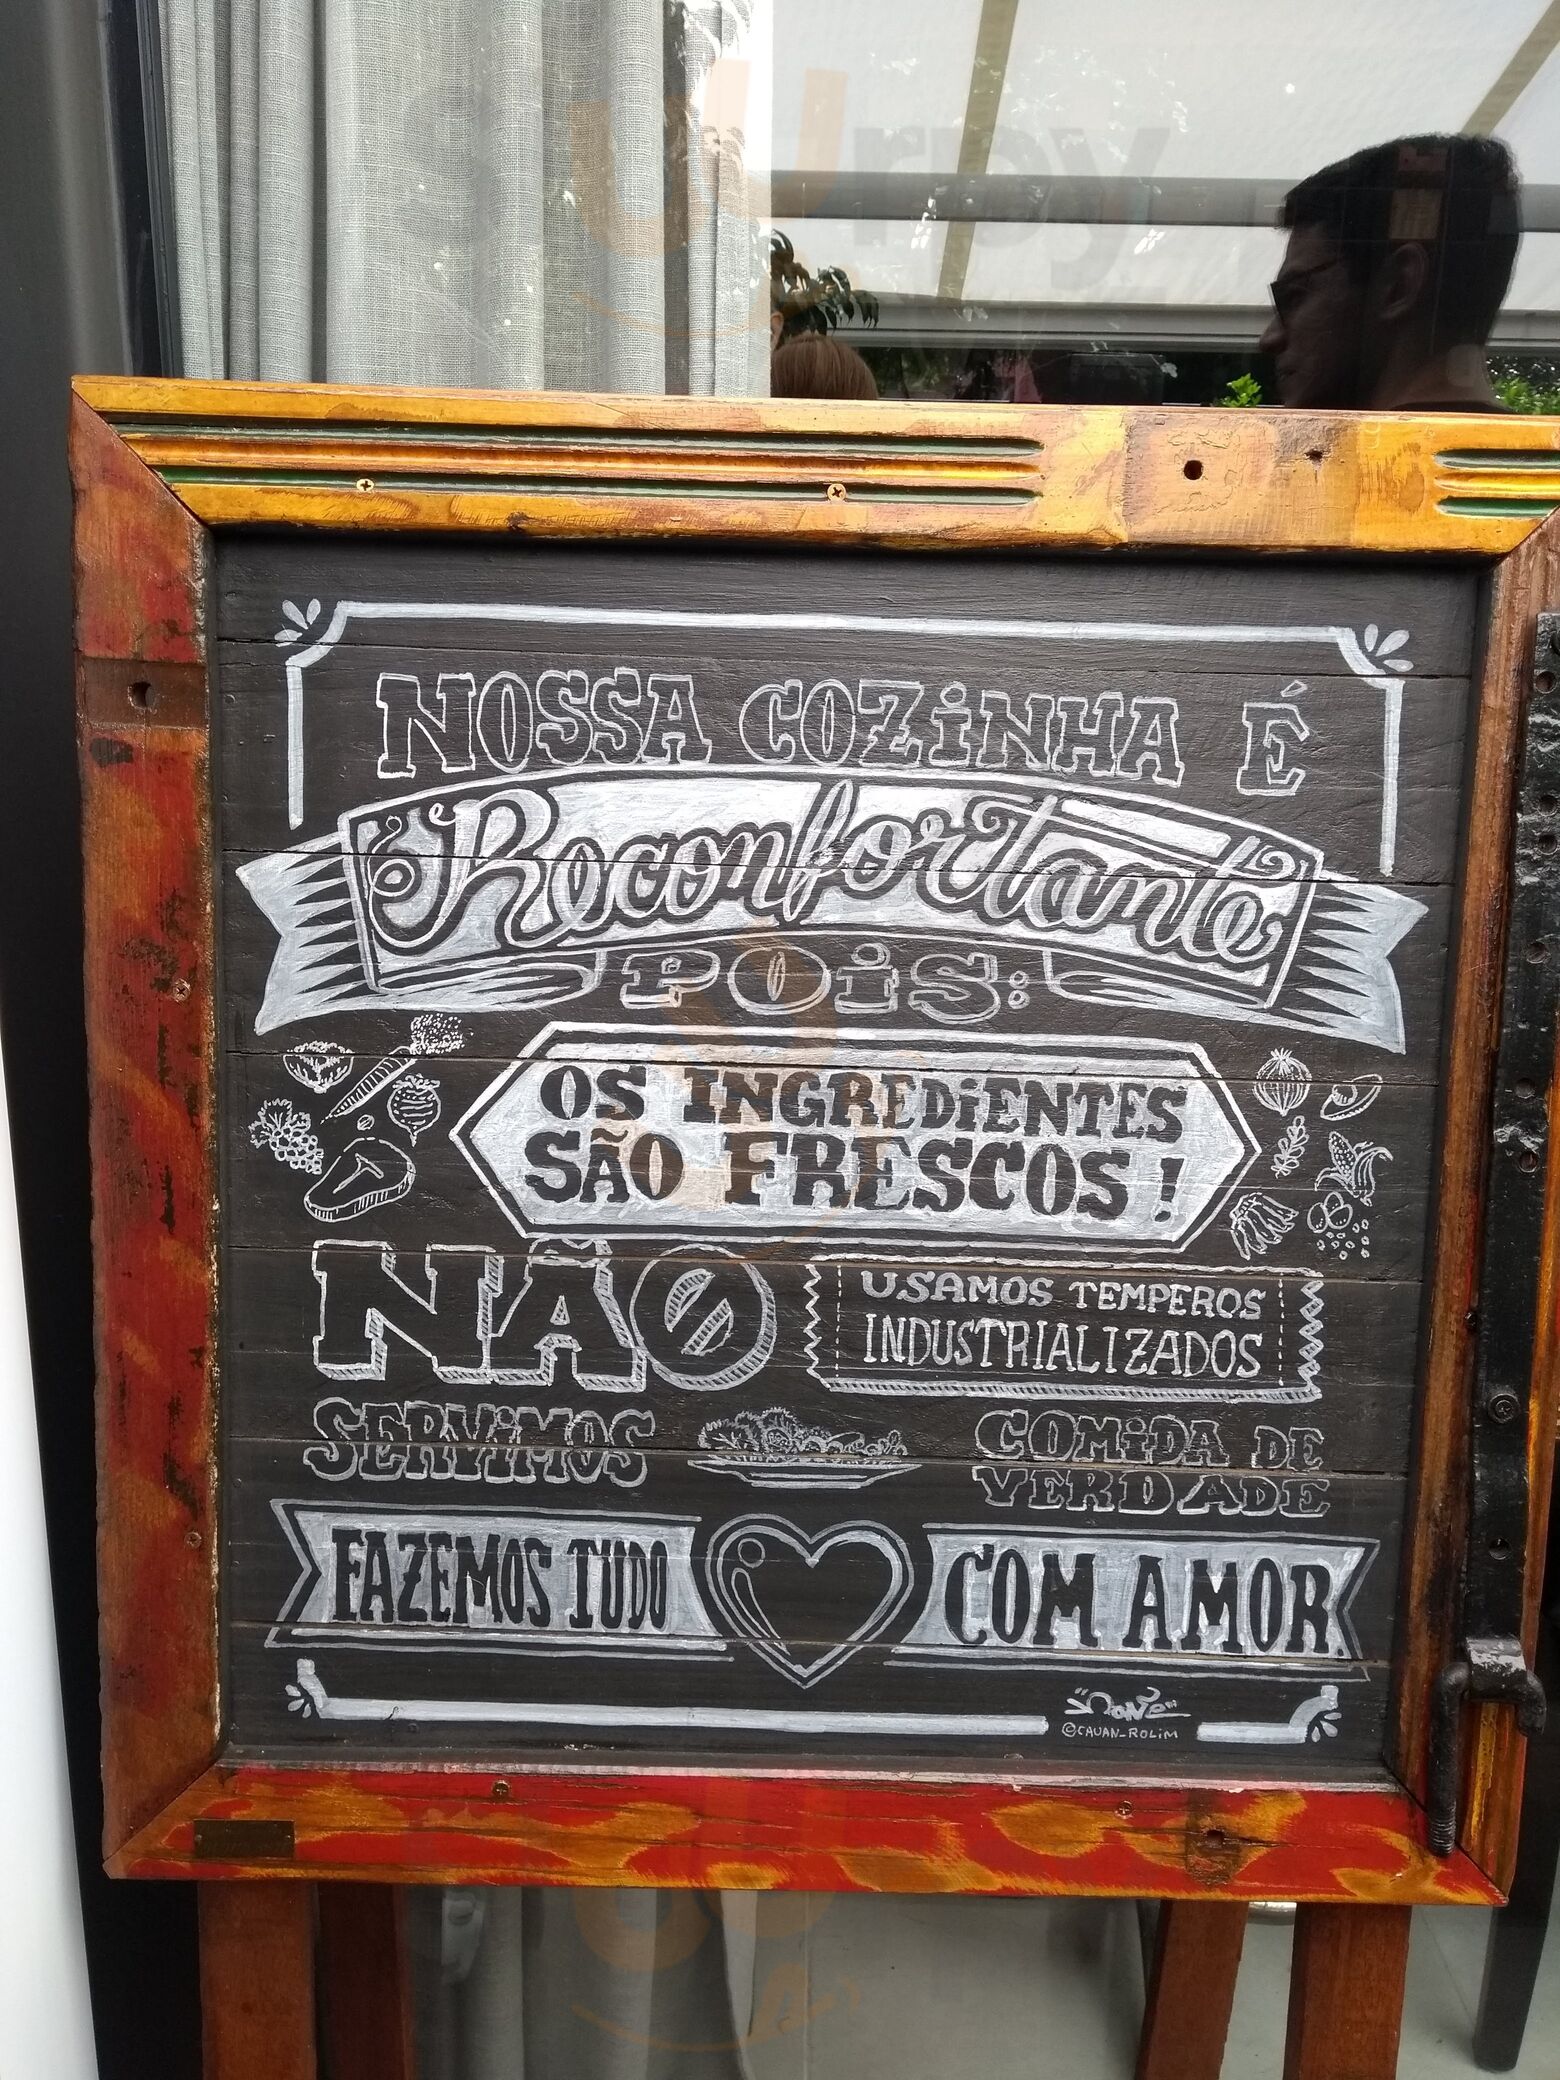 urpy
NOSSA COZiNHA É
Reconfortante
POiS:
OS INGREDiENTES
SÃO FRESCOS!
NÃO
USAMOS TEMPEROS
INDUSTRIALIZADOS
SERViMOS
COMiDA DE
VERDADE
FAZEMOS TUDO
COM AMOR
©CAUAN_ROLiM